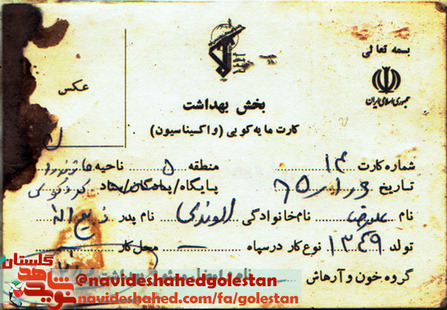 بسمه تعالی
جمهوری اسلامی ایران
عکس
بخش بهداشت
کارت مایه کوبی (واکسیناسیون)
شماره کارت ۱۴ منطقه ۵ ناحیه
تاریخ ۶۵ پایگاه/پادگان/ستاد
نام علیرضا نام خانوادگی الوندی نام پدر ذبیح اله
تولد ۱۳۴۹ نوع کار در سپاه — محل کار
گروه خون و آرهاش
گلستان
نوید شاهد
@navideshahedgolestan
navideshahed.com/fa/golestan